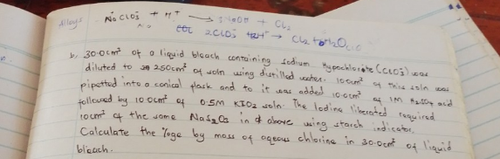 Alleys NaClO3 + H+ → + Cl2
2ClO3 → Cl2 +
b. 30.0cm³ of a liquid bleach containing sodium hypochlorate (ClO3) was
diluted to 250cm³ of soln using distilled water. 10.0cm³ of this soln was
pipetted into a conical flask and to it was added 10.0cm³ of 1M H2SO4 acid
followed by 10.0cm³ of 0.5M KIO2 soln. The Iodine liberated required
10cm³ of the same Na2S2O3 in above using starch indicator.
Calculate the %age by mass of aqeous chlorine in 30.0cm³ of liquid
bleach.